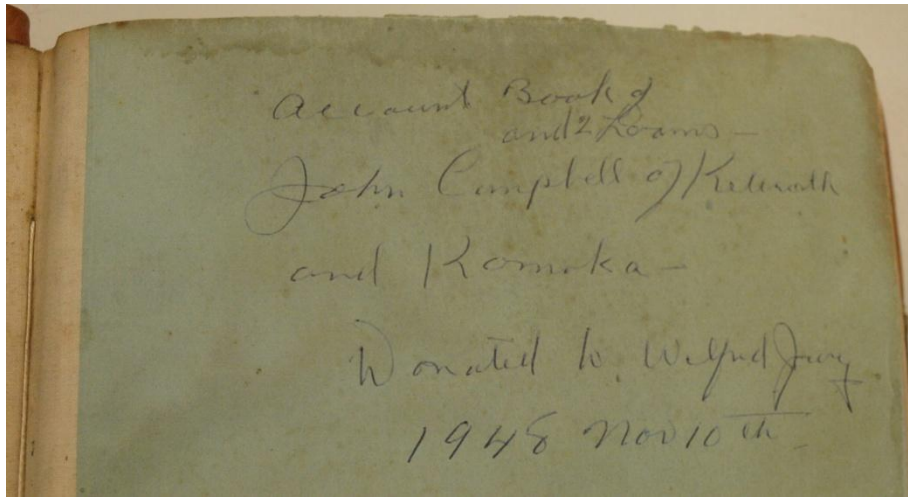 Account Book of
and 2 Looms -
John Campbell of Kilworth
and Komoka -
Donated to Wilfrid Jury
1948 Nov 10th